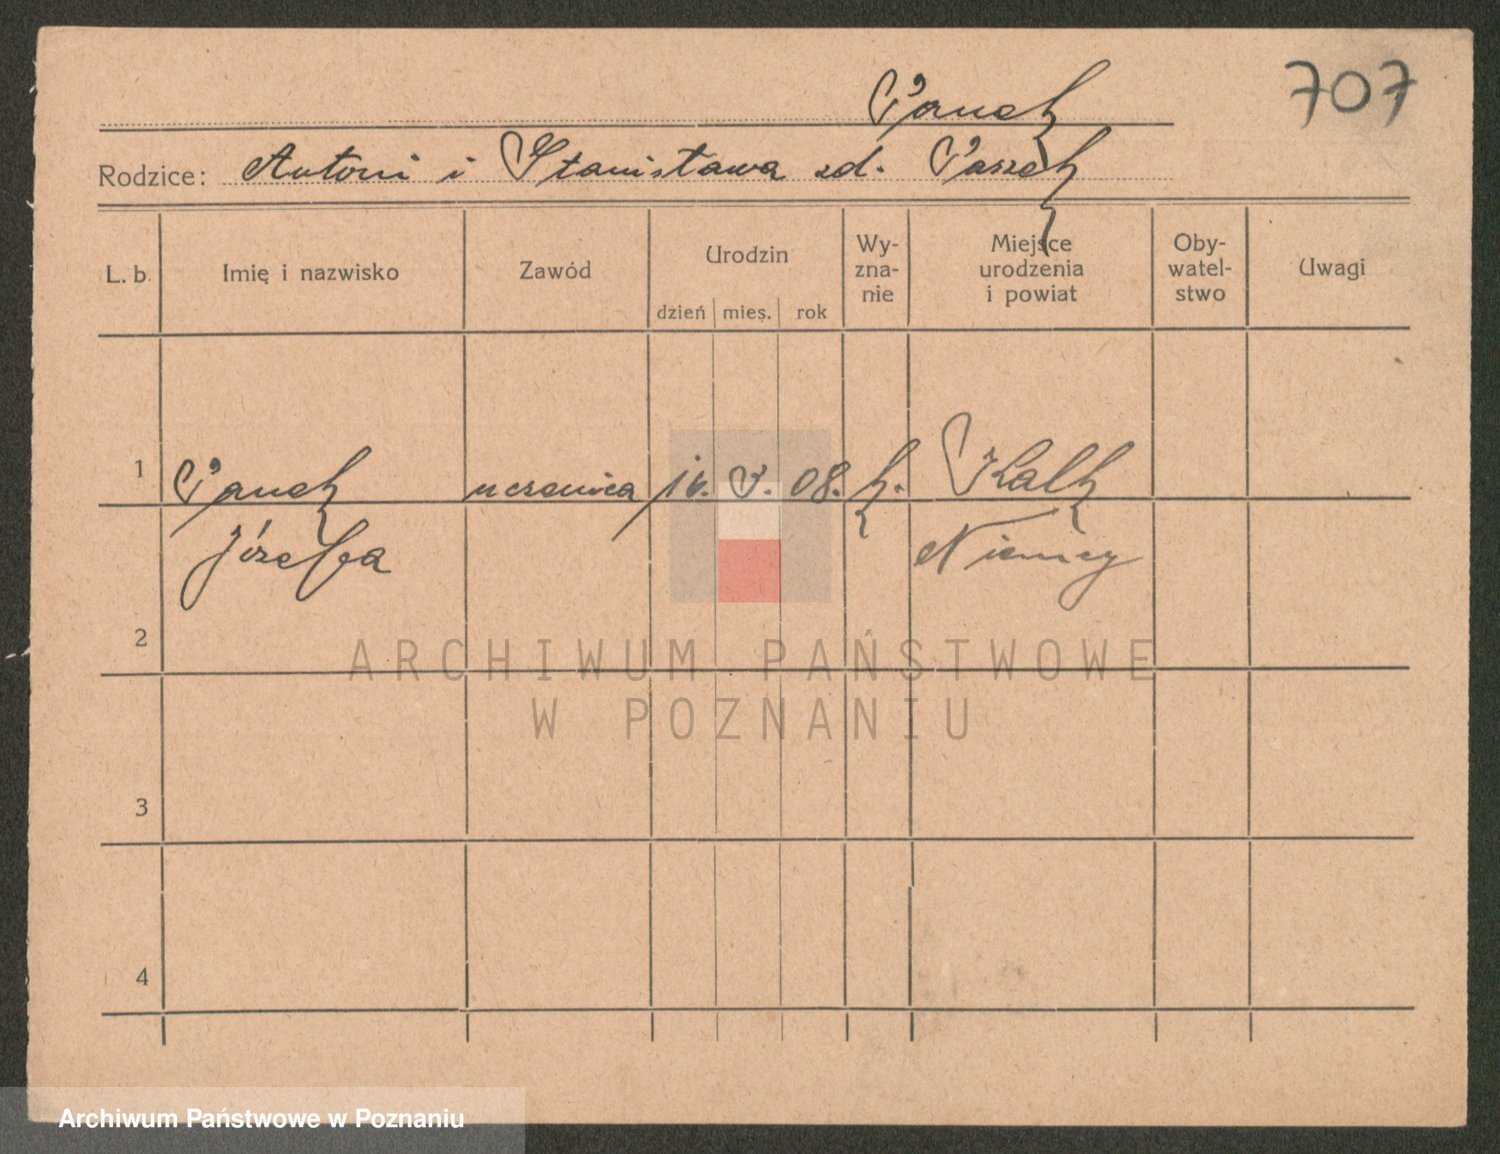 707
Panek
Rodzice: Antoni i Stanisława zd. Paszek
L. b. Imię i nazwisko Zawód Urodzin dzień mieś. rok Wy-zna-nie Miejsce urodzenia i powiat Oby-watel-stwo Uwagi
1 Panek uczenica 16. V. 08. k. Kalk
Józefa Niemcy
2
ARCHIWUM PAŃSTWOWE
W POZNANIU
3
4
Archiwum Państwowe w Poznaniu